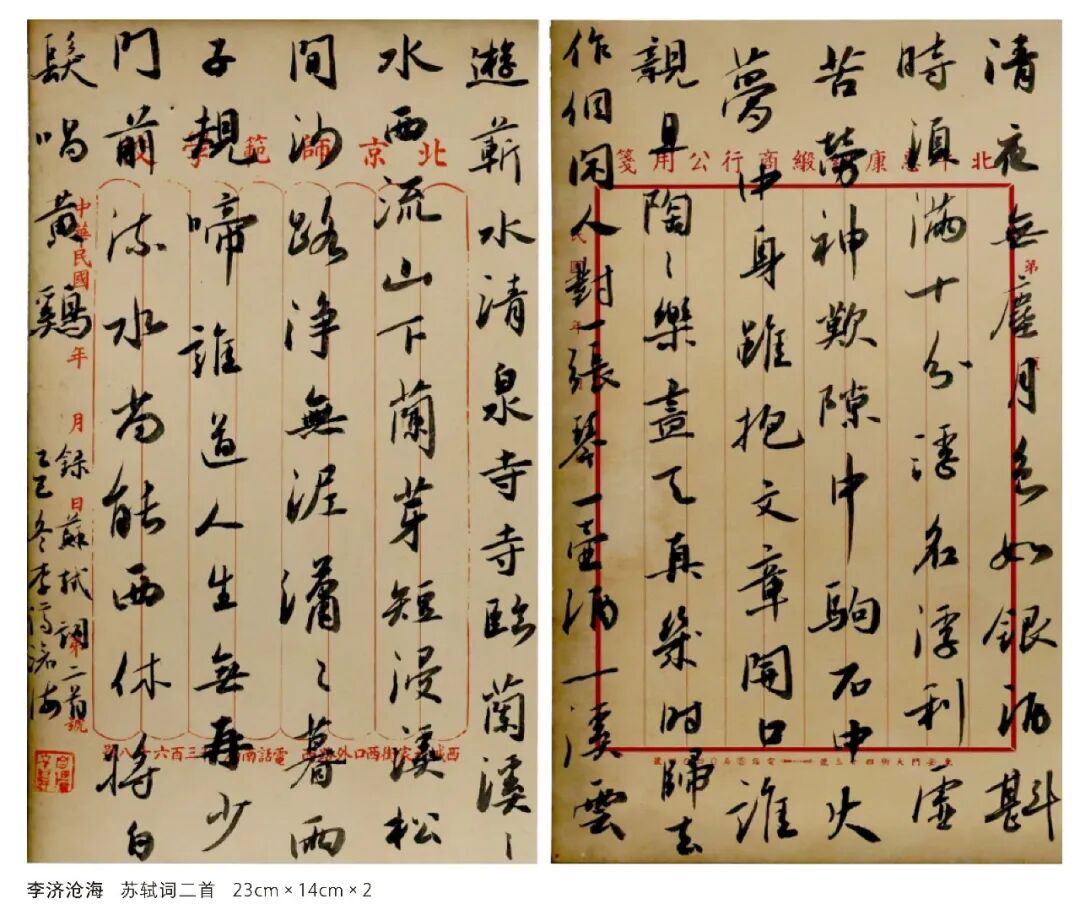 清夜無塵月色如銀酒斟
時須滿十分浮名浮利虛
苦勞神歎隙中駒石中火
夢中身雖抱文章開口誰
親且陶〻樂盡天真幾時歸去
作個閑人對一張琴一壺酒一溪雲
康 緞商行公用箋
第
民國 年
遊蘄水清泉寺寺臨蘭溪〻
水西流山下蘭芽短浸溪松
間沙路淨無泥瀟〻暮雨
子規啼誰道人生無再少
門前流水尚能西休將白
髮唱黃鷄
錄蘇軾詞二首
乙巳冬李濟滄海
北京師範學
中華民國 年 月 日 第 號
李济沧海 苏轼词二首 23cm×14cm×2